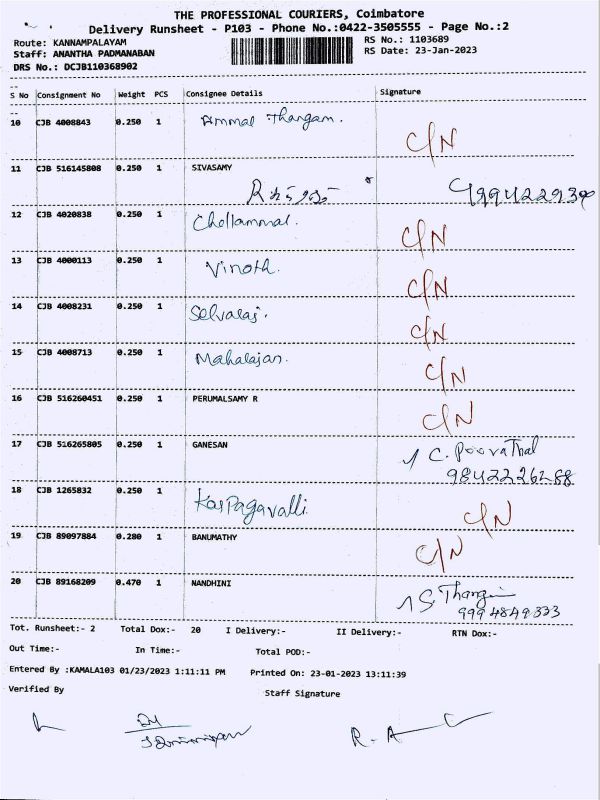 THE PROFESSIONAL COURIERS, Coimbatore
Delivery Runsheet - P103 - Phone No.:0422-3505555 - Page No.:2
Route: KANNAMPALAYAM
RS No.: 1103689
Staff: ANANTHA PADMANABAN
RS Date: 23-Jan-2023
DRS No.: DCJB110368902
S No Consignment No Weight PCS Consignee Details Signature
10 CJB 4008843 0.250 1 Ammal Thangam. C/N
11 CJB 516145808 0.250 1 SIVASAMY
12 CJB 4020838 0.250 1 Chellammal. C/N
13 CJB 4000113 0.250 1 Vinoth. C/N
14 CJB 4008231 0.250 1 Selvaraj. C/N
15 CJB 4008713 0.250 1 Mahalajan. C/N
16 CJB 516260451 0.250 1 PERUMALSAMY R C/N
17 CJB 516265805 0.250 1 GANESAN C. Poovathal
18 CJB 1265832 0.250 1 Karpagavalli C/N
19 CJB 89097884 0.280 1 BANUMATHY C/N
20 CJB 89168209 0.470 1 NANDHINI
9994849333
Tot. Runsheet:- 2 Total Dox:- 20 I Delivery:- II Delivery:- RTN Dox:-
Out Time:- In Time:- Total POD:-
Entered By :KAMALA103 01/23/2023 1:11:11 PM Printed On: 23-01-2023 13:11:39
Verified By Staff Signature
R. A